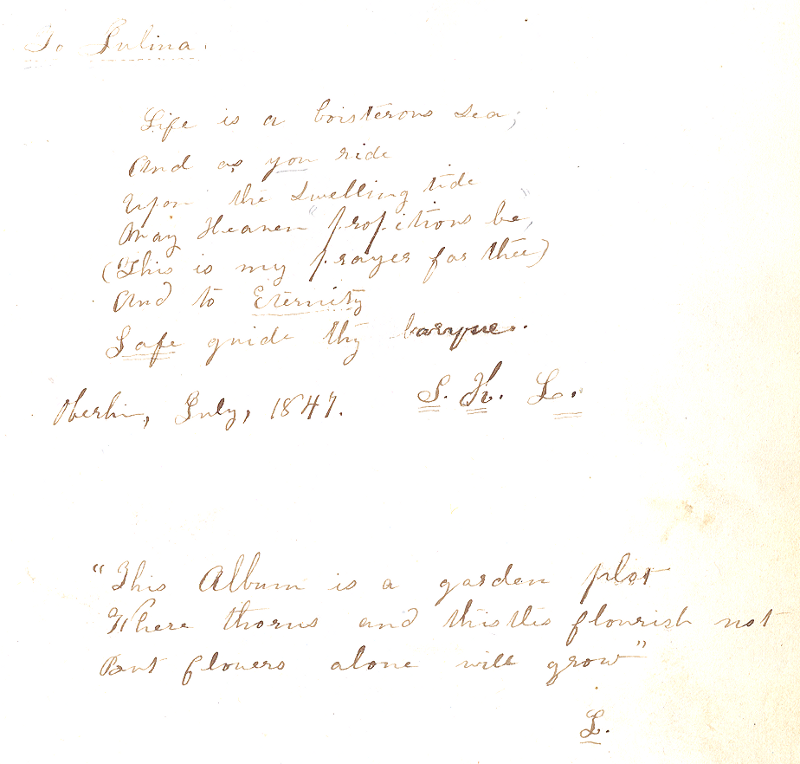 To Julina.
Life is a boisterous sea;
And as you ride
Upon the swelling tide
May Heaven "propitious be",
(This is my prayer for thee)
And to Eternity
Safe guide thy barque.
Oberlin, July, 1847. S. H. L.
"This Album is a garden plot
Where thorns and thistles flourish not
But flowers alone will grow"
L.